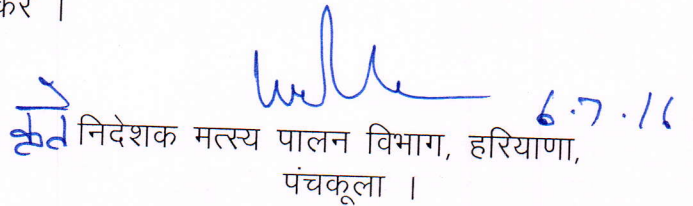 करें ।
6.7.16
कृते निदेशक मत्स्य पालन विभाग, हरियाणा,
पंचकूला ।